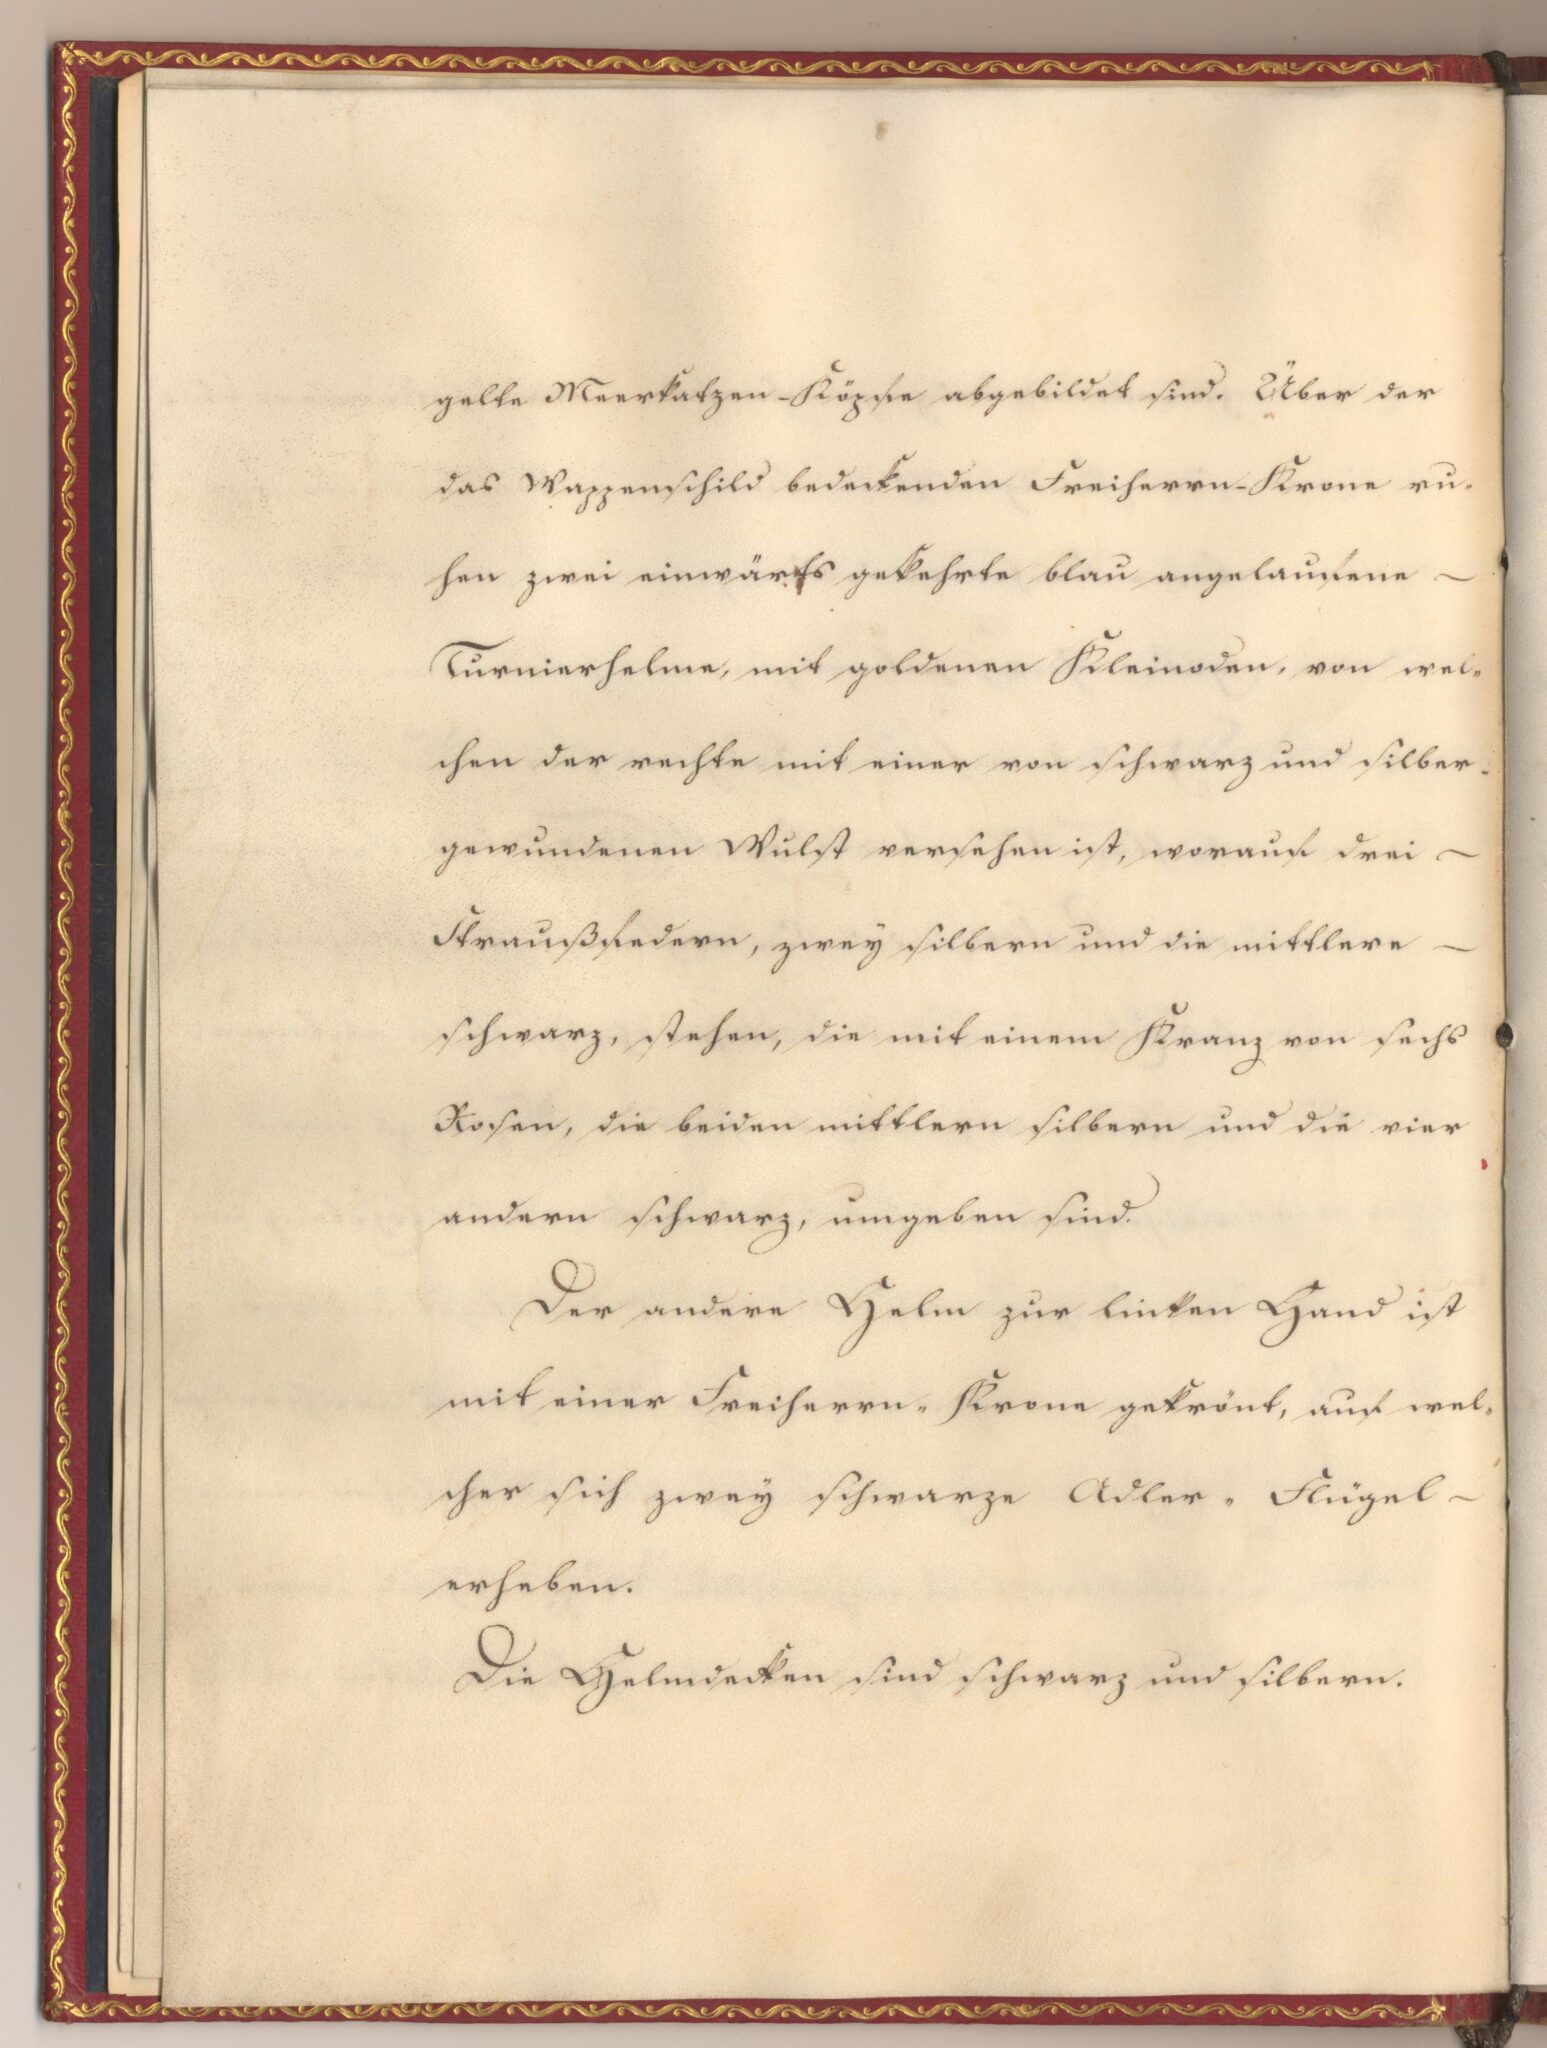 gelte Meerkatzen-Köpfe abgebildet sind. Über der
das Wappenschild bedeckenden Freiherrn-Krone ru-
hen zwei einwärts gekehrte blau angelaufene –
Turnierhelme, mit goldenen Kleinoden, von wel-
chen der rechte mit einer von schwarz und silber-
gewundenen Wulst versehen ist, worauf drei –
Straußfedern, zwey silbern und die mittlere –
schwarz, stehen, die mit einem Kranz von sechs
Rosen, die beiden mittlern silbern und die vier
andern schwarz, umgeben sind.
Der andere Helm zur linken Hand ist
mit einer Freiherrn-Krone gekrönt, auf wel-
cher sich zwey schwarze Adler-Flügel –
erheben.
Die Helmdecken sind schwarz und silbern.